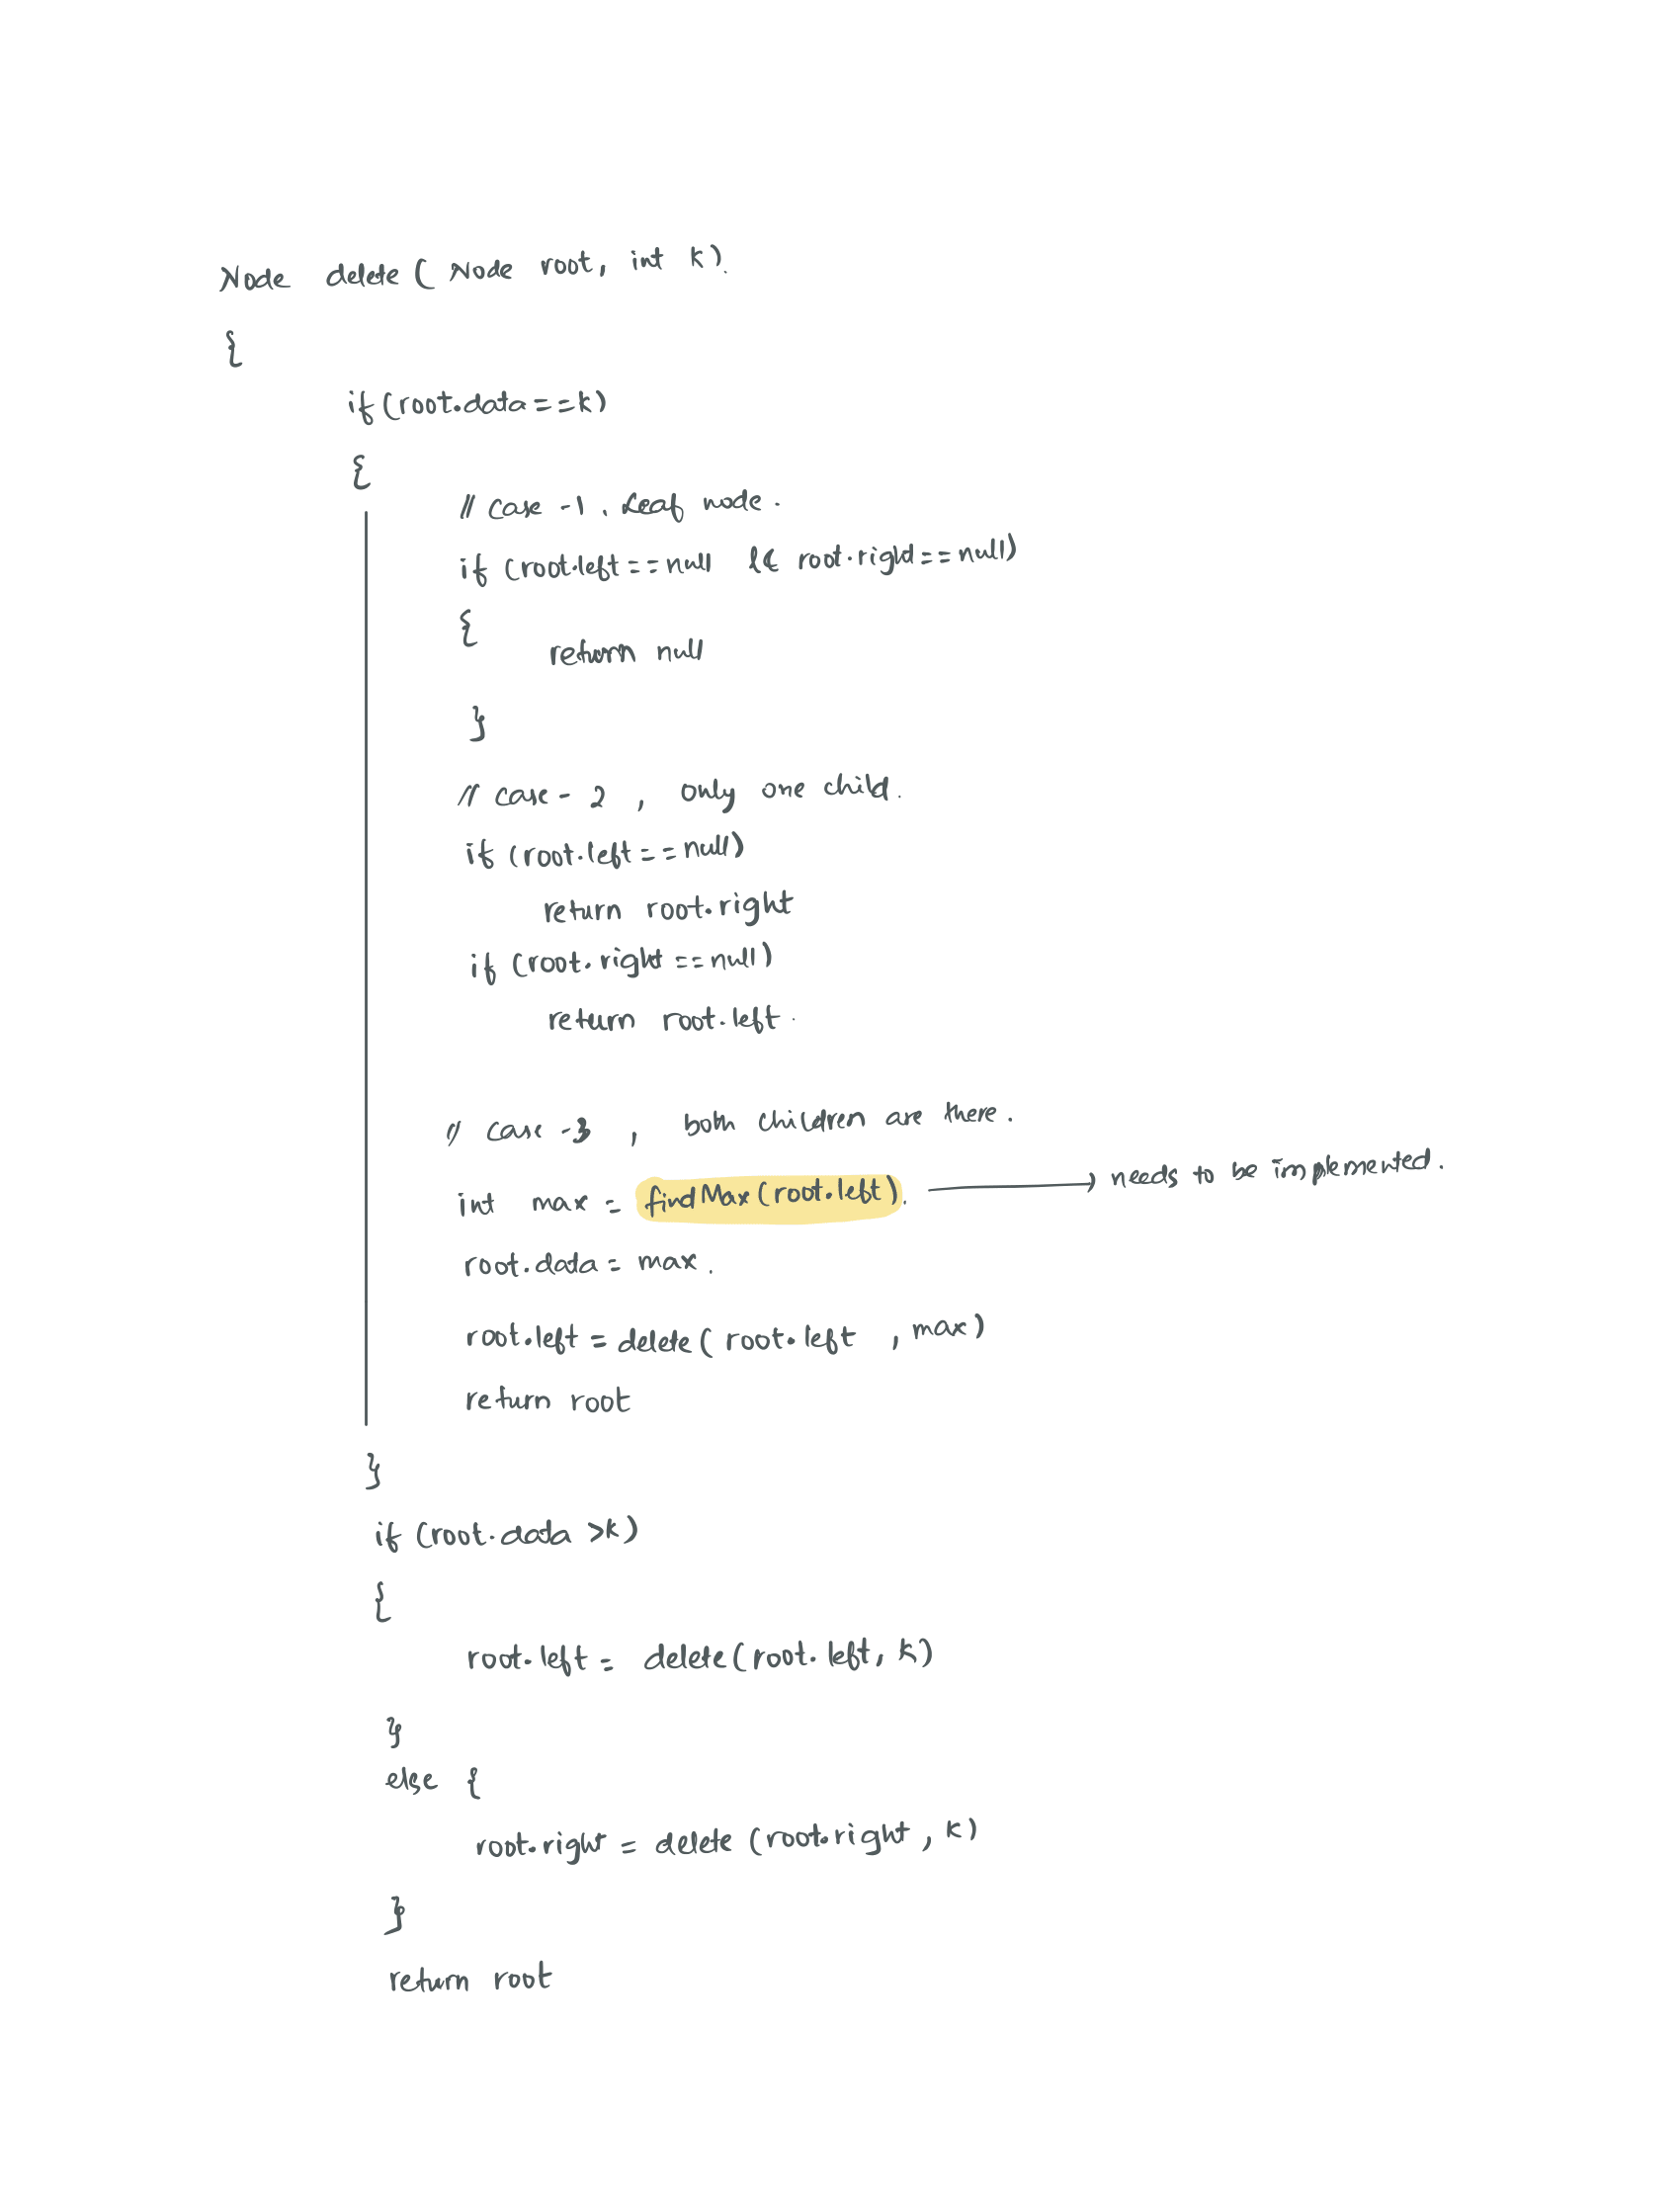 Node delete ( Node root, int k).
{
if (root.data==k)
{
// case -1 . Leaf node .
if (root.left==null && root.right==null)
{
return null
}
// case - 2 , only one child .
if (root.left==null)
return root.right
if (root.right==null)
return root.left .
// case -3 , both children are there .
int max = findMax(root.left). → needs to be implemented .
root.data = max .
root.left = delete( root.left , max)
return root
}
if (root.data >k)
{
root.left = delete(root.left, k)
}
else {
root.right = delete (root.right , k)
}
return root